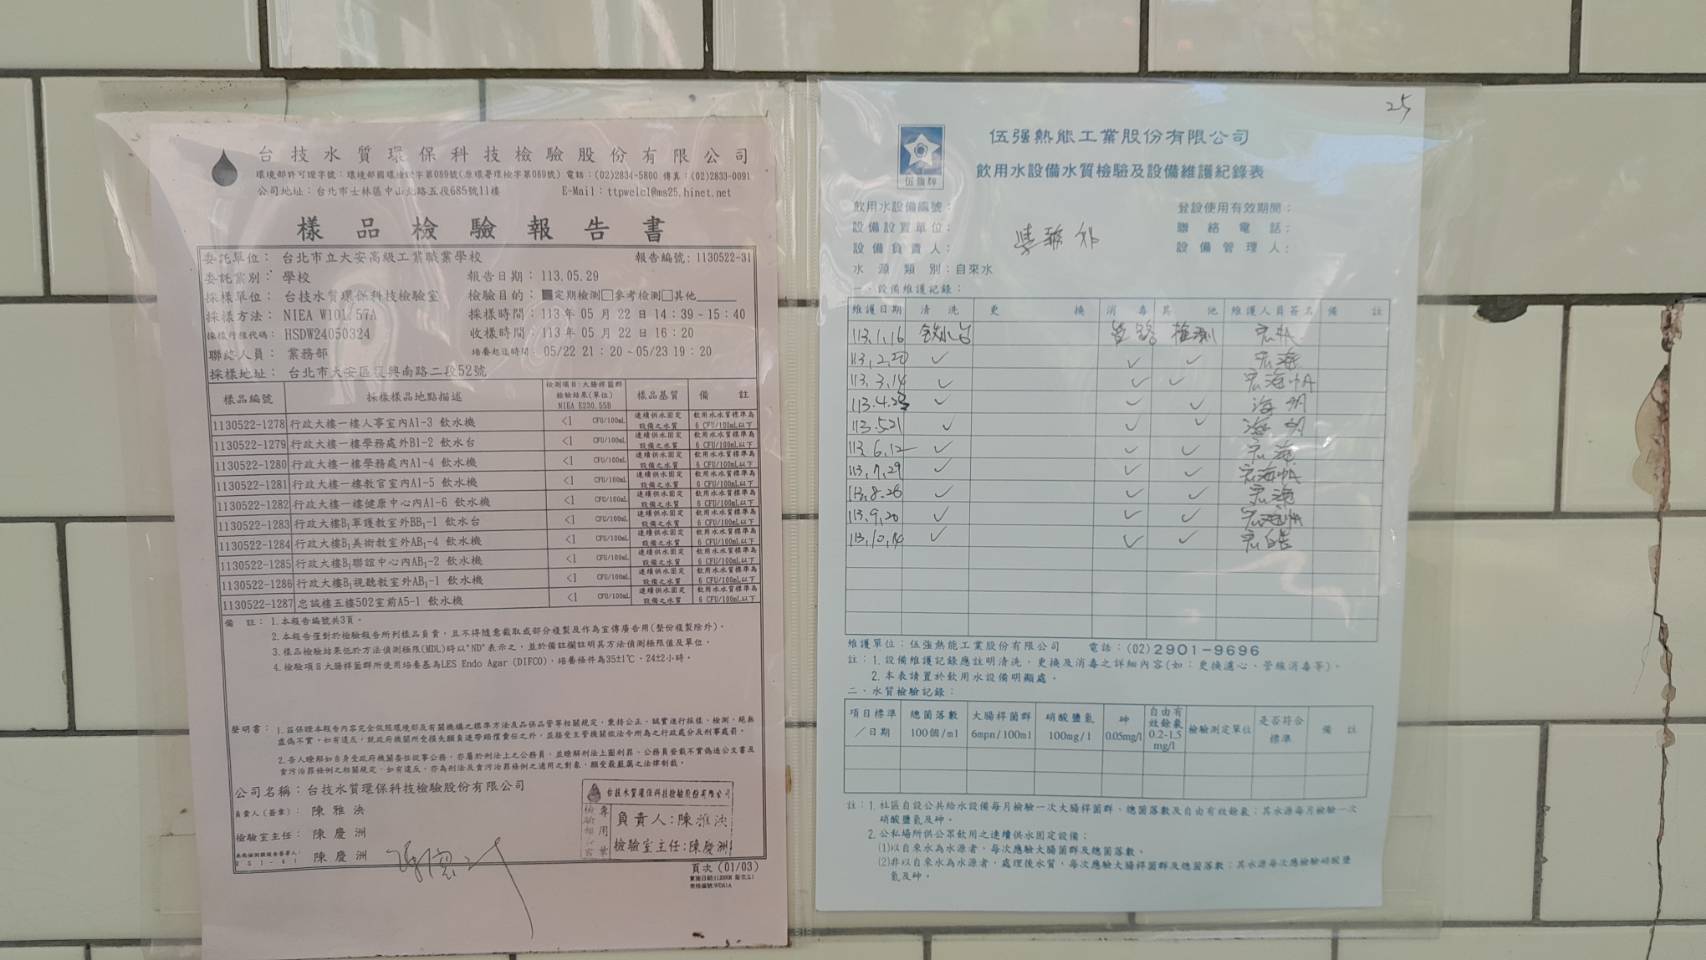 台技水質環保科技檢驗股份有限公司
環境部許可證字號：環境部國環檢證字第089號(原環署環檢字第089號) 電話：(02)2834-5800 傳真：(02)2833-0091
公司地址：台北市士林區中山北路五段685號11樓 E-Mail：ttpwelcl@ms25.hinet.net
樣品檢驗報告書
委託單位： 台北市立大安高級工業職業學校 報告編號：1130522-31
委託業別： 學校 報告日期：113.05.29
採樣單位： 台技水質環保科技檢驗室 檢驗目的：■定期檢測□參考檢測□其他
採樣方法： NIEA W101.57A 採樣時間：113 年 05 月 22 日 14：39-15：40
採樣行程代碼： HSDW24050324 收樣時間：113 年 05 月 22 日 16：20
聯絡人員： 業務部 培養起迄時間： 05/22 21：20 ~ 05/23 19：20
採樣地址： 台北市大安區復興南路二段52號
樣品編號 採樣樣品地點描述 檢測項目:大腸桿菌群 檢驗結果(單位) NIEA E230.55B 樣品基質 備 註
1130522-1278 行政大樓一樓人事室內A1-3 飲水機 <1 CFU/100mL 連續供水固定設備之水質 飲用水水質標準為6 CFU/100mL以下
1130522-1279 行政大樓一樓學務處外B1-2 飲水台 <1 CFU/100mL 連續供水固定設備之水質 飲用水水質標準為6 CFU/100mL以下
1130522-1280 行政大樓一樓學務處內A1-4 飲水機 <1 CFU/100mL 連續供水固定設備之水質 飲用水水質標準為6 CFU/100mL以下
1130522-1281 行政大樓一樓教官室內A1-5 飲水機 <1 CFU/100mL 連續供水固定設備之水質 飲用水水質標準為6 CFU/100mL以下
1130522-1282 行政大樓一樓健康中心內A1-6 飲水機 <1 CFU/100mL 連續供水固定設備之水質 飲用水水質標準為6 CFU/100mL以下
1130522-1283 行政大樓B1軍護教室外BB1-1 飲水台 <1 CFU/100mL 連續供水固定設備之水質 飲用水水質標準為6 CFU/100mL以下
1130522-1284 行政大樓B1美術教室外AB1-4 飲水機 <1 CFU/100mL 連續供水固定設備之水質 飲用水水質標準為6 CFU/100mL以下
1130522-1285 行政大樓B1聯誼中心內AB1-2 飲水機 <1 CFU/100mL 連續供水固定設備之水質 飲用水水質標準為6 CFU/100mL以下
1130522-1286 行政大樓B1視聽教室外AB1-1 飲水機 <1 CFU/100mL 連續供水固定設備之水質 飲用水水質標準為6 CFU/100mL以下
1130522-1287 忠誠樓五樓502室前A5-1 飲水機 <1 CFU/100mL 連續供水固定設備之水質 飲用水水質標準為6 CFU/100mL以下
備 註：1.本報告編號共3頁。
2.本報告僅對於檢驗報告所列樣品負責，且不得隨意截取或部分複製及作為宣傳廣告用(整份複製除外)。
3.樣品檢驗結果低於方法偵測極限(MDL)時以"ND"表示之，並於備註欄註明其方法偵測極限值及單位。
4.檢驗項目大腸桿菌群所使用培養基為LES Endo Agar (DIFCO)，培養條件為35±1℃，24±2小時。
聲明書：1.茲保證本報告內容完全依照環境部及有關機構之標準方法及品保品管等相關規定，秉持公正、誠實進行採樣、檢測，絕無
虛偽不實，如有違反，就政府機關所受損失願負連帶賠償責任之外，並接受主管機關依法令所為之行政處分及刑事處罰。
2.吾人瞭解如自身受政府機關委任從事公務，亦屬於刑法上之公務員，並瞭解刑法上圖利罪、公務員登載不實偽造公文書及
貪污治罪條例之相關規定，如有違反，亦為刑法及貪污治罪條例之適用之對象，願受最嚴厲之法律制裁。
公司名稱：台技水質環保科技檢驗股份有限公司
負責人(簽章)： 陳雅泱
檢驗室主任： 陳慶洲
陳慶洲
台技水質環保科技檢驗股份有限公司
專用章
負責人:陳雅泱
檢驗室主任:陳慶洲
頁次 (01/03)
25
伍強牌
伍强熱能工業股份有限公司
飲用水設備水質檢驗及設備維護紀錄表
飲用水設備編號： 登設使用有效期間：
設備設置單位： 聯絡電話：
設備負責人： 設備管理人：
學務外
水源類別：自來水
一、設備維護記錄：
維護日期 清 洗 更 換 消 毒 其 他 維護人員簽名 備 註
113.1.16 飲水台 管路 檢測
113.2.20 ✓ ✓ ✓ 宏海
113.3.14 ✓ ✓ ✓
113.4.23 ✓ ✓ ✓
113.5.21 ✓ ✓ ✓
113.6.12 ✓ ✓ ✓ 宏海
113.7.29 ✓ ✓ ✓
113.8.26 ✓ ✓ ✓ 宏海
113.9.20 ✓ ✓ ✓
113.10.14 ✓ ✓ ✓
維護單位：伍強熱能工業股份有限公司 電話：(02)2901-9696
註：1.設備維護記錄應註明清洗、更換及消毒之詳細內容(如：更換濾心、管線消毒等)。
2.本表請置於飲用水設備明顯處。
二、水質檢驗記錄：
項目標準／日期 總菌落數 100個/ml 大腸桿菌群 6mpn/100ml 硝酸鹽氮 100mg/l 砷 0.05mg/l 自由有效餘氯 0.2-1.5 mg/l 檢驗測定單位 是否符合標準 備 註
註：1.社區自設公共給水設備每月檢驗一次大腸桿菌群、總菌落數及自由有效餘氯；其水源每月檢驗一次
硝酸鹽氮及砷。
2.公私場所供公眾飲用之連續供水固定設備：
(1)以自來水為水源者，每次應驗大腸桿菌群及總菌落數。
(2)非以自來水為水源者，處理後水質，每次應驗大腸桿菌群及總菌落數；其水源每次應檢驗硝酸鹽
氮及砷。